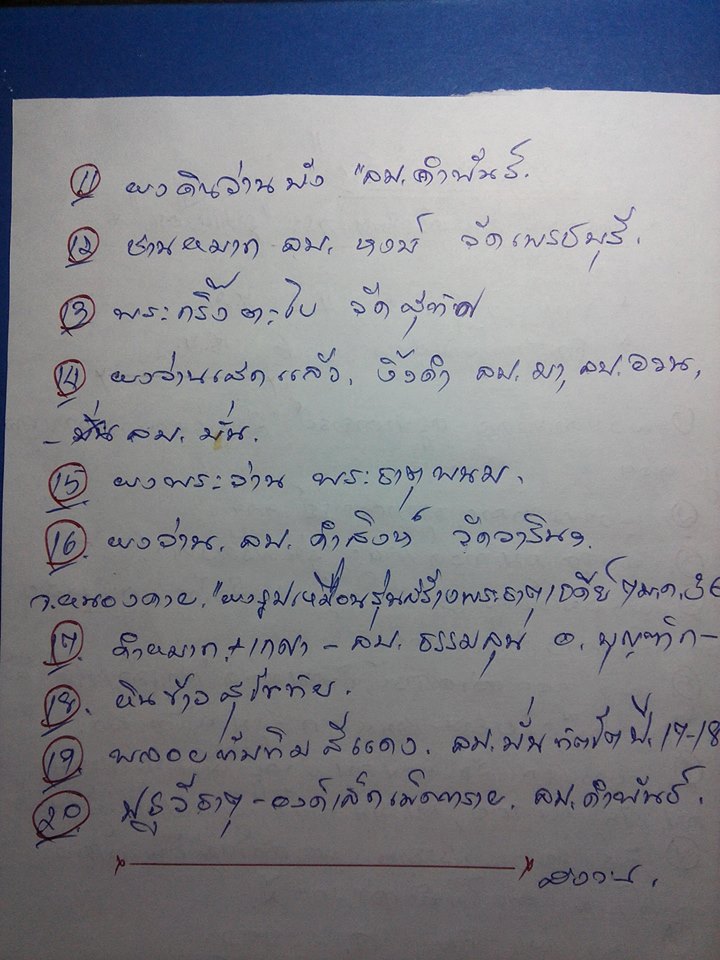 11 ผงดินว่าน พัง "ลป. คำพันธ์.
12 ชานหมาก ลป. หงษ์ วัดเพชรบุรี.
13 พระกริ่งตะไบ วัดสุทัศ
14 ผงว่านเสด แล้ว, ขี้ผึ้งดำ ลป. มา, ลป. อวน,
– ลป. มั่น.
15 ผงพระว่าน พระธาตุพนม.
16 ผงว่าน. ลป. คำสิงห์ วัดวารินฯ.
จ.หนองคาย. "ผงรูปเหมือนรุ่นสร้างพระธาตุเจดีย์ 7 ม.ค. 36
17 คำหมาก + เกศา – ลป. ธรรมสุนย์ อ. บุญฑริก –
18. หินข้าวสุโขทัย.
19 พลอยทับทิมสีแดง. ลป. มั่น ทัตโต ปี. 17-18
20 – องค์เล็กเม็ดทราย. ลป. คำพันธ์.
สงวน.